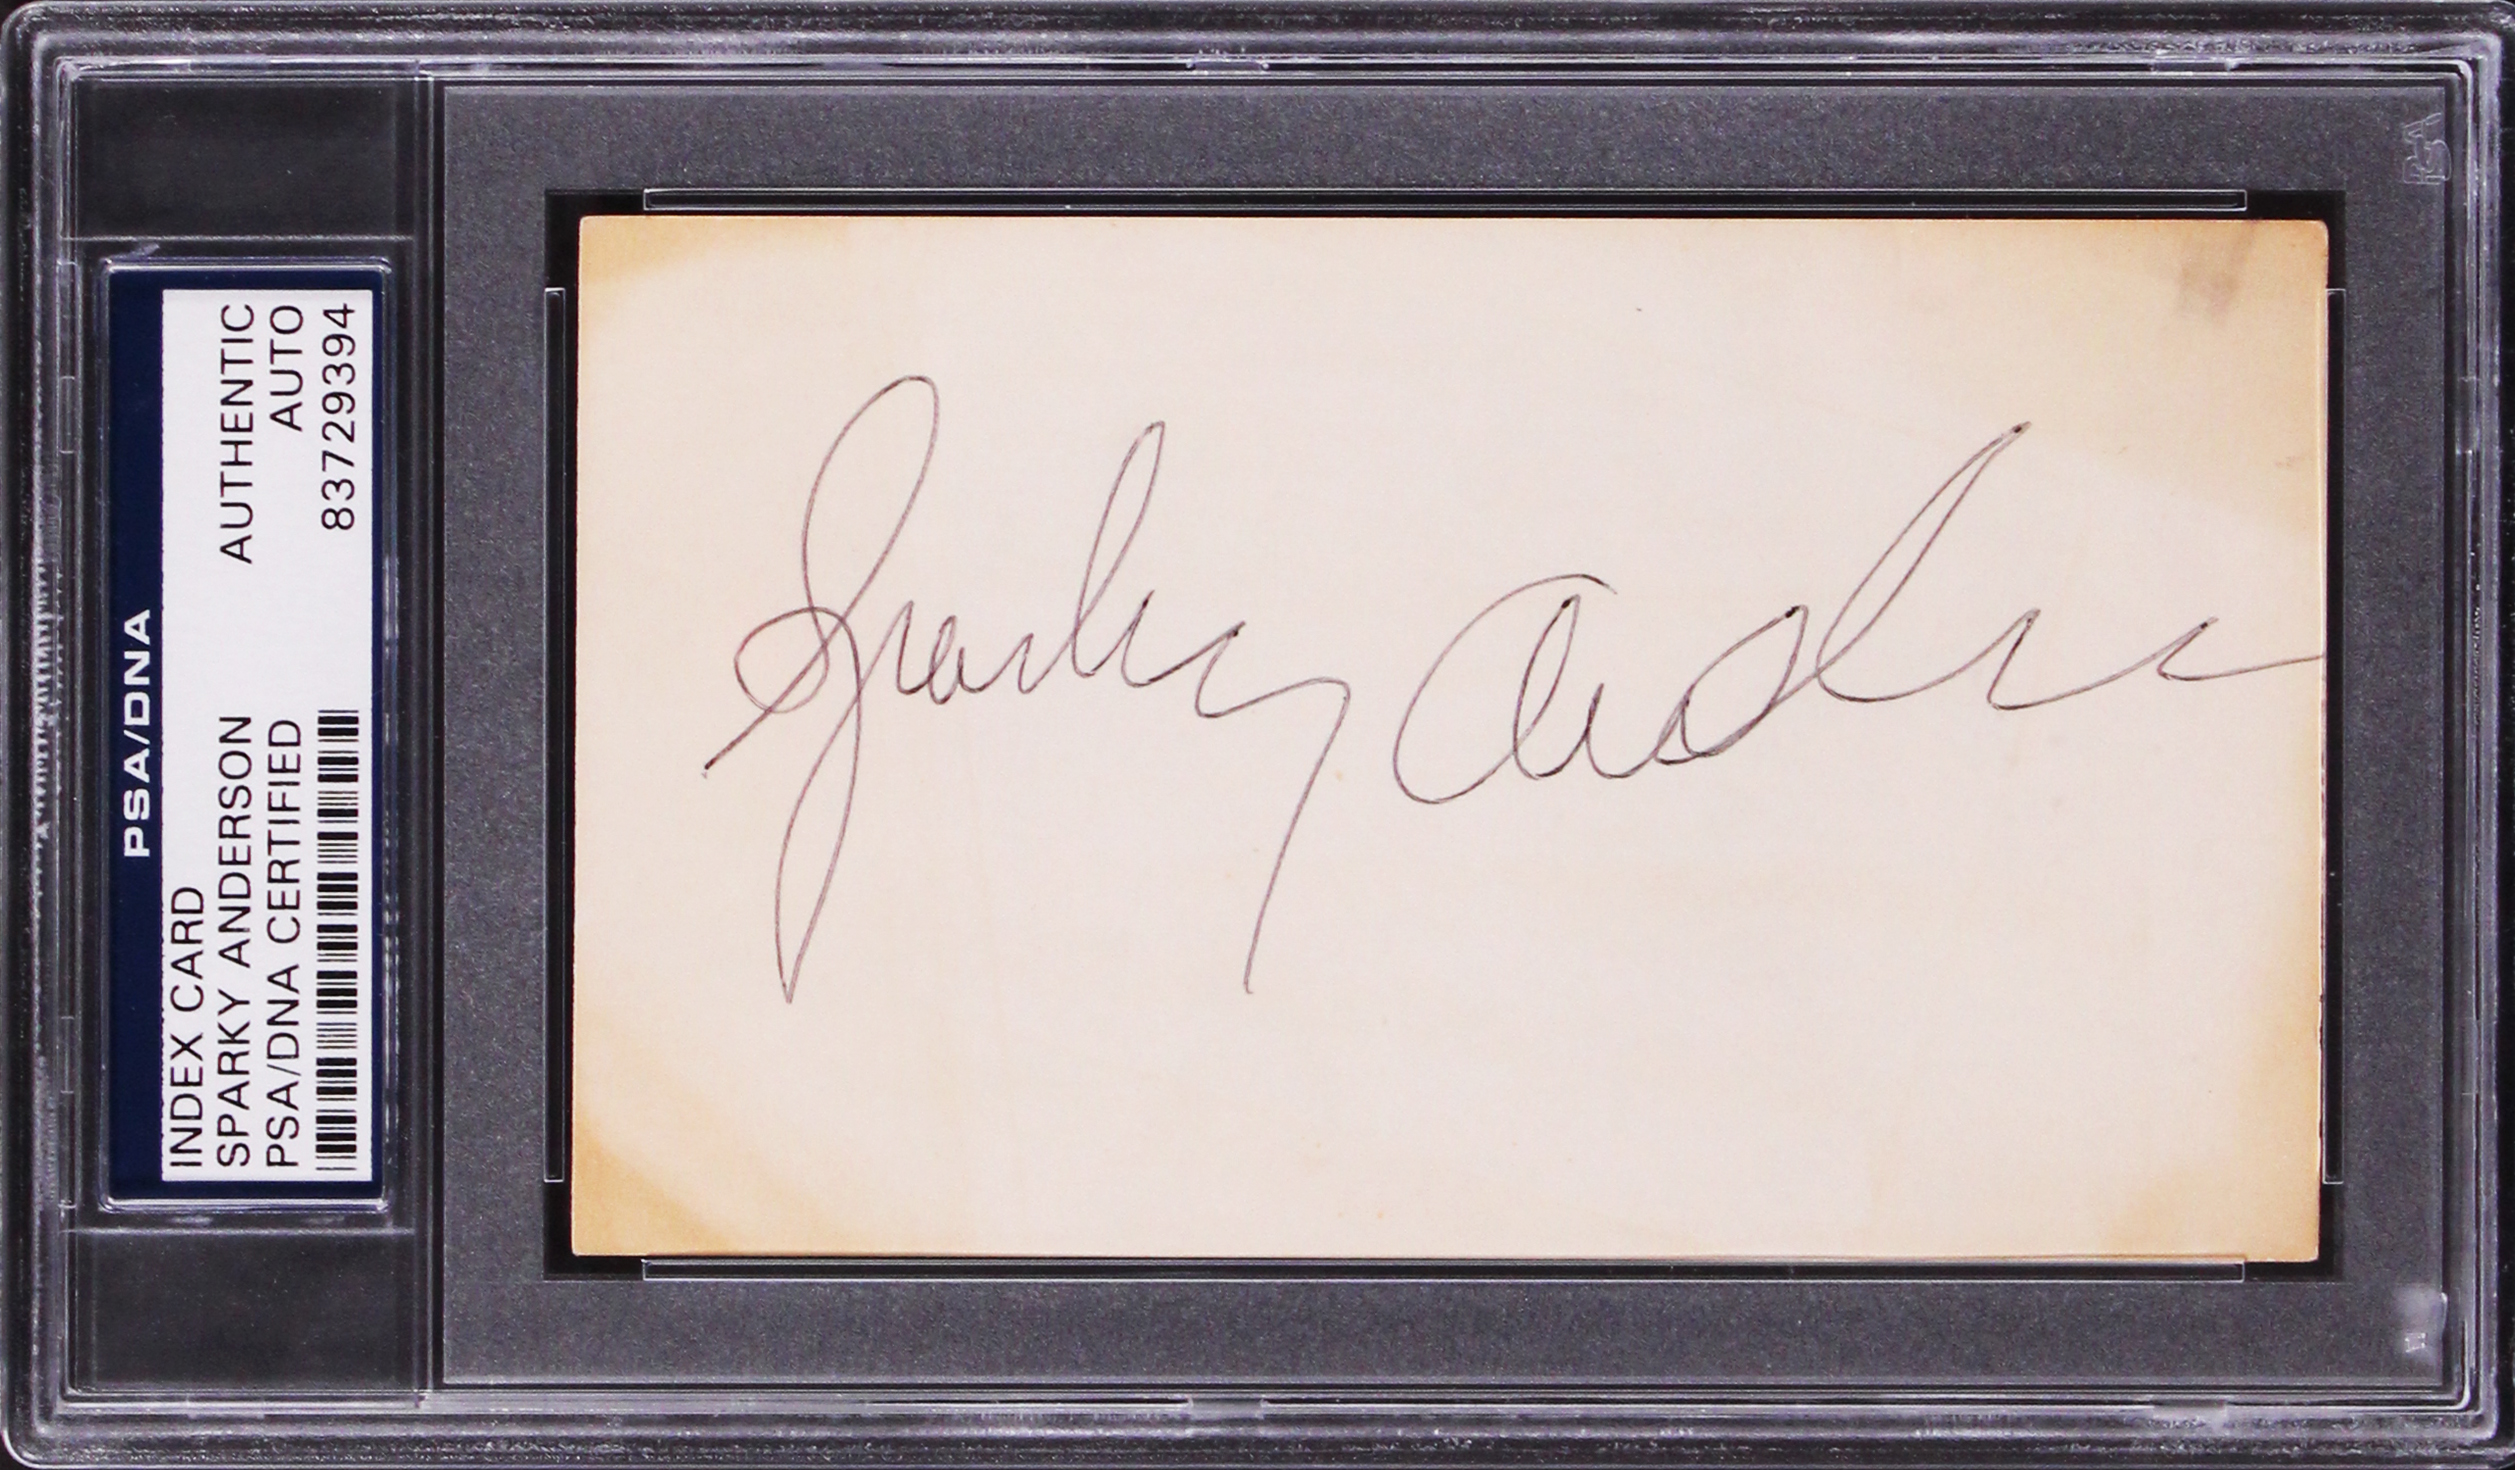 PSA/DNA
INDEX CARD
SPARKY ANDERSON AUTHENTIC
PSA/DNA CERTIFIED AUTO
83729394
Sparky Anderson
PSA